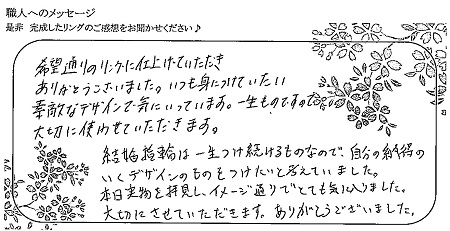 職人へのメッセージ
是非 完成したリングのご感想をお聞かせください♪
希望通りのリングに仕上げていただき
ありがとうございました。いつも身につけていたい
素敵なデザインで気にいっています。一生ものですので
大切に使わせていただきます。
結婚指輪は一生つけ続けるものなので、自分の納得の
いくデザインのものをつけたいと考えていました。
本日実物を拝見し、イメージ通りでとても気に入りました。
大切にさせていただきます。ありがとうございました。